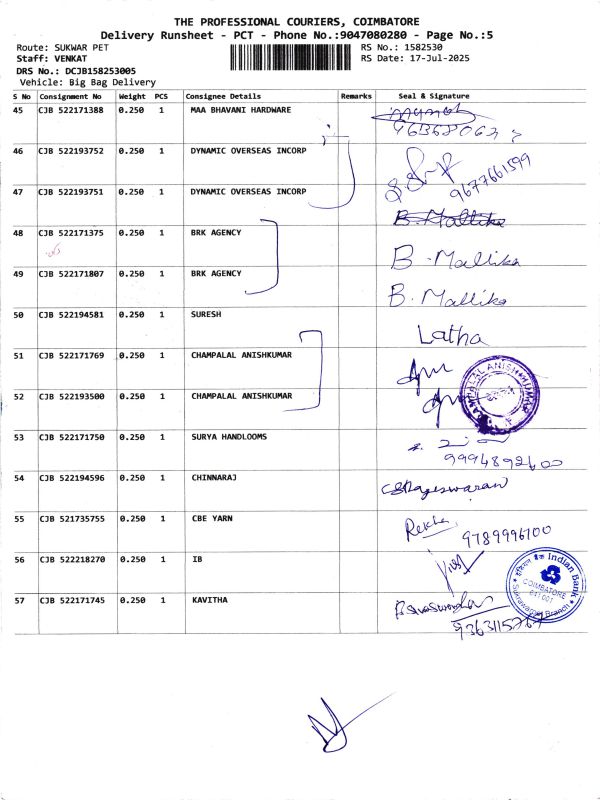 THE PROFESSIONAL COURIERS, COIMBATORE
Delivery Runsheet - PCT - Phone No.:9047080280 - Page No.:5
Route: SUKWAR PET RS No.: 1582530
Staff: VENKAT RS Date: 17-Jul-2025
DRS No.: DCJB158253005
Vehicle: Big Bag Delivery
S No Consignment No Weight PCS Consignee Details Remarks Seal & Signature
45 CJB 522171388 0.250 1 MAA BHAVANI HARDWARE
46 CJB 522193752 0.250 1 DYNAMIC OVERSEAS INCORP
9677661599
47 CJB 522193751 0.250 1 DYNAMIC OVERSEAS INCORP
B. Mallika
48 CJB 522171375 0.250 1 BRK AGENCY
B. Mallika
49 CJB 522171807 0.250 1 BRK AGENCY
B. Mallika
50 CJB 522194581 0.250 1 SURESH
Latha
51 CJB 522171769 0.250 1 CHAMPALAL ANISHKUMAR
52 CJB 522193500 0.250 1 CHAMPALAL ANISHKUMAR
CHAMPALAL ANISHKUMAR
53 CJB 522171750 0.250 1 SURYA HANDLOOMS
9994892600
54 CJB 522194596 0.250 1 CHINNARAJ
55 CJB 521735755 0.250 1 CBE YARN
Rekha 9789996700
56 CJB 522218270 0.250 1 IB
इंडियन बैंक Indian Bank
COIMBATORE
641 001
57 CJB 522171745 0.250 1 KAVITHA